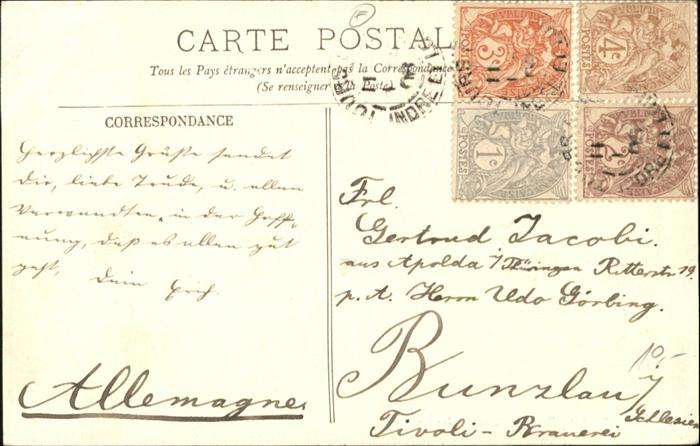 CARTE POSTALE
Tous les Pays étrangers n'acceptent pas la Correspondance
(Se renseigner à la Poste)
CORRESPONDANCE
Herzlichste Grüße sendet
Dir, liebe Trude, u. allen
Verwandten, in der Hoff-
nung, daß es allen gut
geht, Dein Erich.
Allemagne
3c
4c
POSTES
1c
POSTES
2c
TOURS
INDRE ET
Frl.
Gertrud Jacobi.
aus Apolda / Thüringen Ritterstr 19.
p. A. Herrn Udo Görbing.
10,-
Bunzlau /
Schlesien
Tivoli-Brauerei